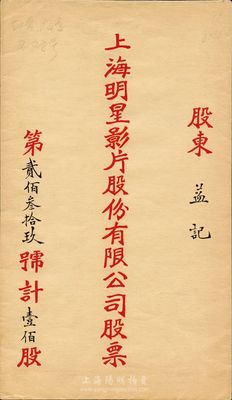 股東 益記
上海明星影片股份有限公司股票
第貳佰叁拾玖號計壹佰股
上海陽明拍賣